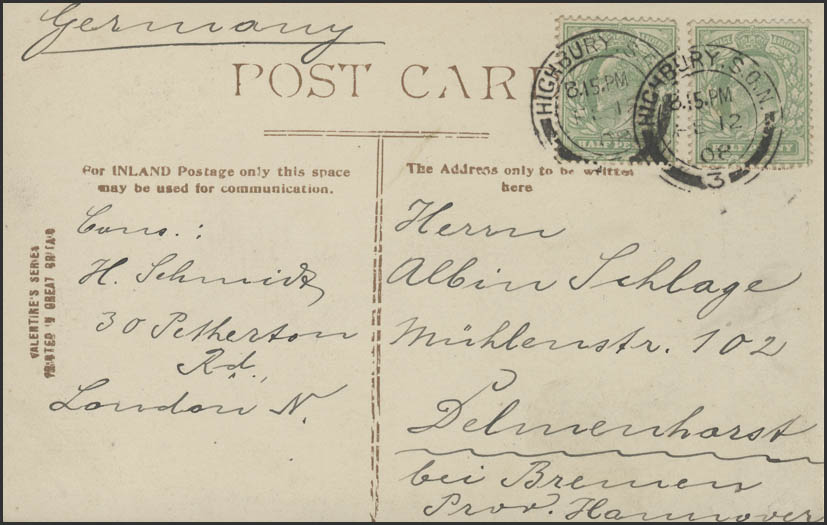 Germany
POST CARD
For INLAND Postage only this space
may be used for communication.
The Address only to be written
here
Cons.:
H. Schmidt
30 Petherton
Rd.
London N.
Herrn
Albin Schlage
Mühlenstr. 102
Delmenhorst
bei Bremen
Prov. Hannover
VALENTINE'S SERIES
PRINTED IN GREAT BRITAIN
HIGHBURY. S.O.N.
8.15.PM
12
08
3
HIGHBURY. S.
8.15.PM
12
HALF PENNY